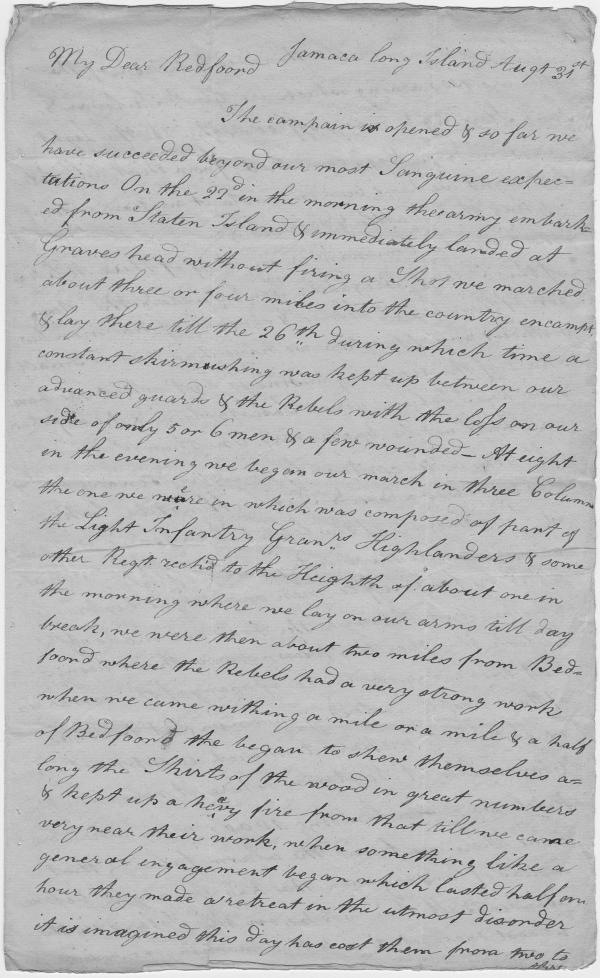 My Dear Redfoord Jamaca long Island Augt 31st
The campain is opened & so far we
have succeeded beyond our most Sanguine expec=
tations On the 22d in the morning the army embark=
ed from Staten Island & immediately landed at
Graves head without firing a Shot we marched
about three or four miles into the country encampt
& lay there till the 26th during which time a
constant skirmushing was kept up between our
advanced guards & the Rebels with the loss on our
side of only 5 or 6 men & a few wounded — At eight
in the evening we began our march in three Column
the one we were in which was composed of part of
the Light Infantry Granrs Highlanders & some
other Regt. rech'd to the Heighth of about one in
the morning where we lay on our arms till day
break, we were then about two miles from Bed=
foord where the Rebels had a very strong work
when we came withing a mile or a mile & a half
of Bedfoord the began to shew themselves a=
long the Skirts of the wood in great numbers
& kept up a heavy fire from that till we came
very near their work, when something like a
general engagement began which lasted half an
hour they made a retreat in the utmost disorder
it is imagined this day has cost them from two to